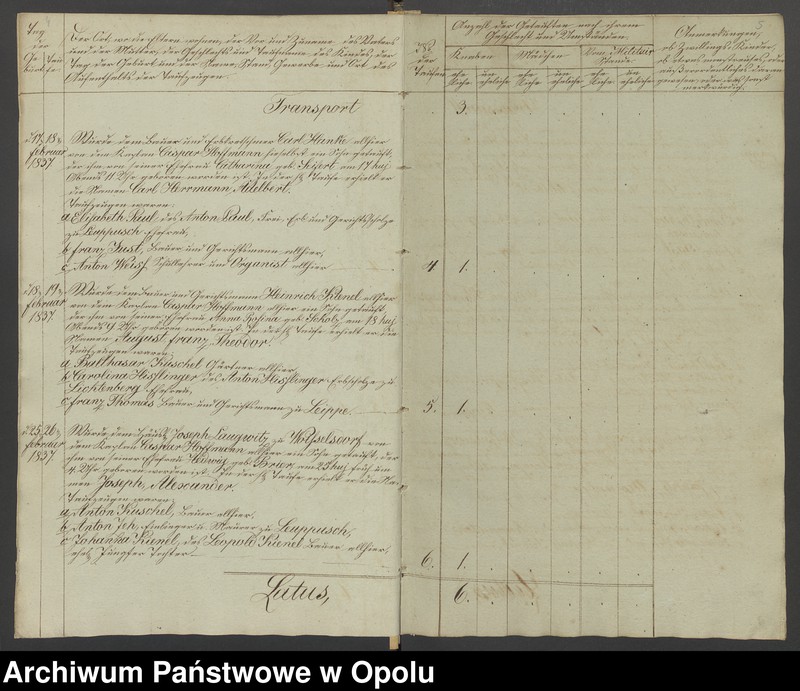 Tag der Geburt Taufe
Der Ort, wo die Eltern wohnen, der Vor und Zuname des Vaters
und der Mutter, des Geschlechts und Taufname des Kindes, der
Tag der Geburt und der Name, Stand, Gewerbe und Ort des
Aufenthalts der Taufzeugen.
No. der Taufen
Anzahl der Getauften nach ihrem
Geschlecht und
Knaben Mädchen Vom Militair Stande
ehe liche un eheliche ehe liche un eheliche ehe liche un eheliche
Anmerkungen,
ob Zwillings Kinder,
5
Transport 3.
d. 17, 18
Februar
1837
Wurde dem Bauer und Carl Hanke allhier
von dem Kaplan Caspar Hoffmann hieselbst ein Sohn getauft,
der ihm von seiner Ehefrau Catharina geb. Seifert am 17 huj
Abends 11 Uhr geboren worden ist. In der h. Taufe erhielt er
die Namen Carl Herrmann Adelbert.
Taufzeugen waren
a Elisabeth Paul des Anton Paul, Frei, Erb und Gerichtsscholze
zu Leuppusch Ehefrau,
b Franz Just, Bauer und Gerichtsmann allhier,
c Anton Weiss, Schullehrer und Organist allhier 4 1.
d. 18, 19
Februar
1837.
Wurde dem Bauer und Gerichtsmann Heinrich Kienel allhier
von dem Kaplan Caspar Hoffmann allhier ein Sohn getauft,
der ihm von seiner Ehefrau Anna Rosina geb. Scholz am 18 huj
Abends 9 Uhr geboren worden ist. In der h. Taufe erhielt er die
Namen August Franz Theodor.
Taufzeugen waren
a Balthasar Kuschel Gärtner allhier,
b Carolina Hisslinger des Anton Hisslinger Erbscholze zu
Lichtenberg Ehefrau,
c Franz Thomas Bauer und Gerichtsmann zu Leippe. 5. 1.
d. 25, 26
Februar
1837.
Wurde dem Joseph Laugwitz zu Woisselsdorf von
dem Kaplan Caspar Hoffmann allhier ein Sohn getauft, der
ihm von seiner Ehefrau Hedwig geb. am 25 huj früh um
4 Uhr geboren worden ist. In der h. Taufe erhielt er die Na-
men Joseph, Alexander.
Taufzeugen waren
a, Anton Kuschel, Bauer allhier,
b, Anton Jeh, Einlieger u. Maurer zu Leuppusch,
c Johanna Kienel, des Leopold Kienel Bauer allhier,
Jungfer Tochter. 6. 1.
Latus, 6.
Archiwum Państwowe w Opolu